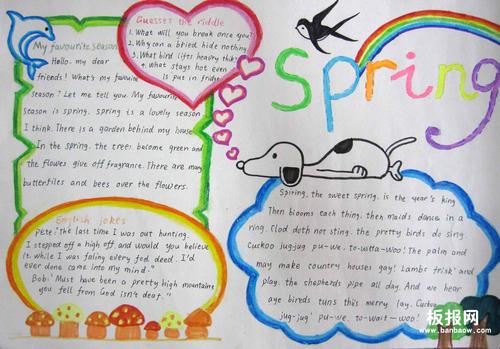 Guesses the riddle
1. What will you break once you?
2. Why can a bried hide nothing
3. What bird lifts heavy thik?
4. What stays hot even
is put in fridge
Spring
My favourite season
Hello. my dear
friends! What's my favouite
season? Let me tell you. My favourite
season is spring. spring is a lovely season
I think. There is a garden behind my house
In the spring. the trees become green and
the flowes give off fragrance. There are many
butterflies and bees over the flowers.
English jokes
Pete: "The last time I was out hunting.
I stepped off a high off and would you believe
it. while I was faling every fed deed. I'd
ever done came into my mind."
Bob: "Must have been a pretty high mountaine
you fell from God isn't deaf."
Spiring. the sweet spring. is the year's king
Then blooms each thing. then maids dance in a
ring. Clod doth not sting. the pretty birds do sing.
Cuckoo jug-jug pu-we. to-witta-woo! The palm and
may make country houses gay! Lambs frisk' and
play. the shepherds pipe all day. And we hear
aye bireds tuns this merry lay. Cuckoo
jug-jug' pu-we. to-wait-woo!
板报网
www.banbaow.com